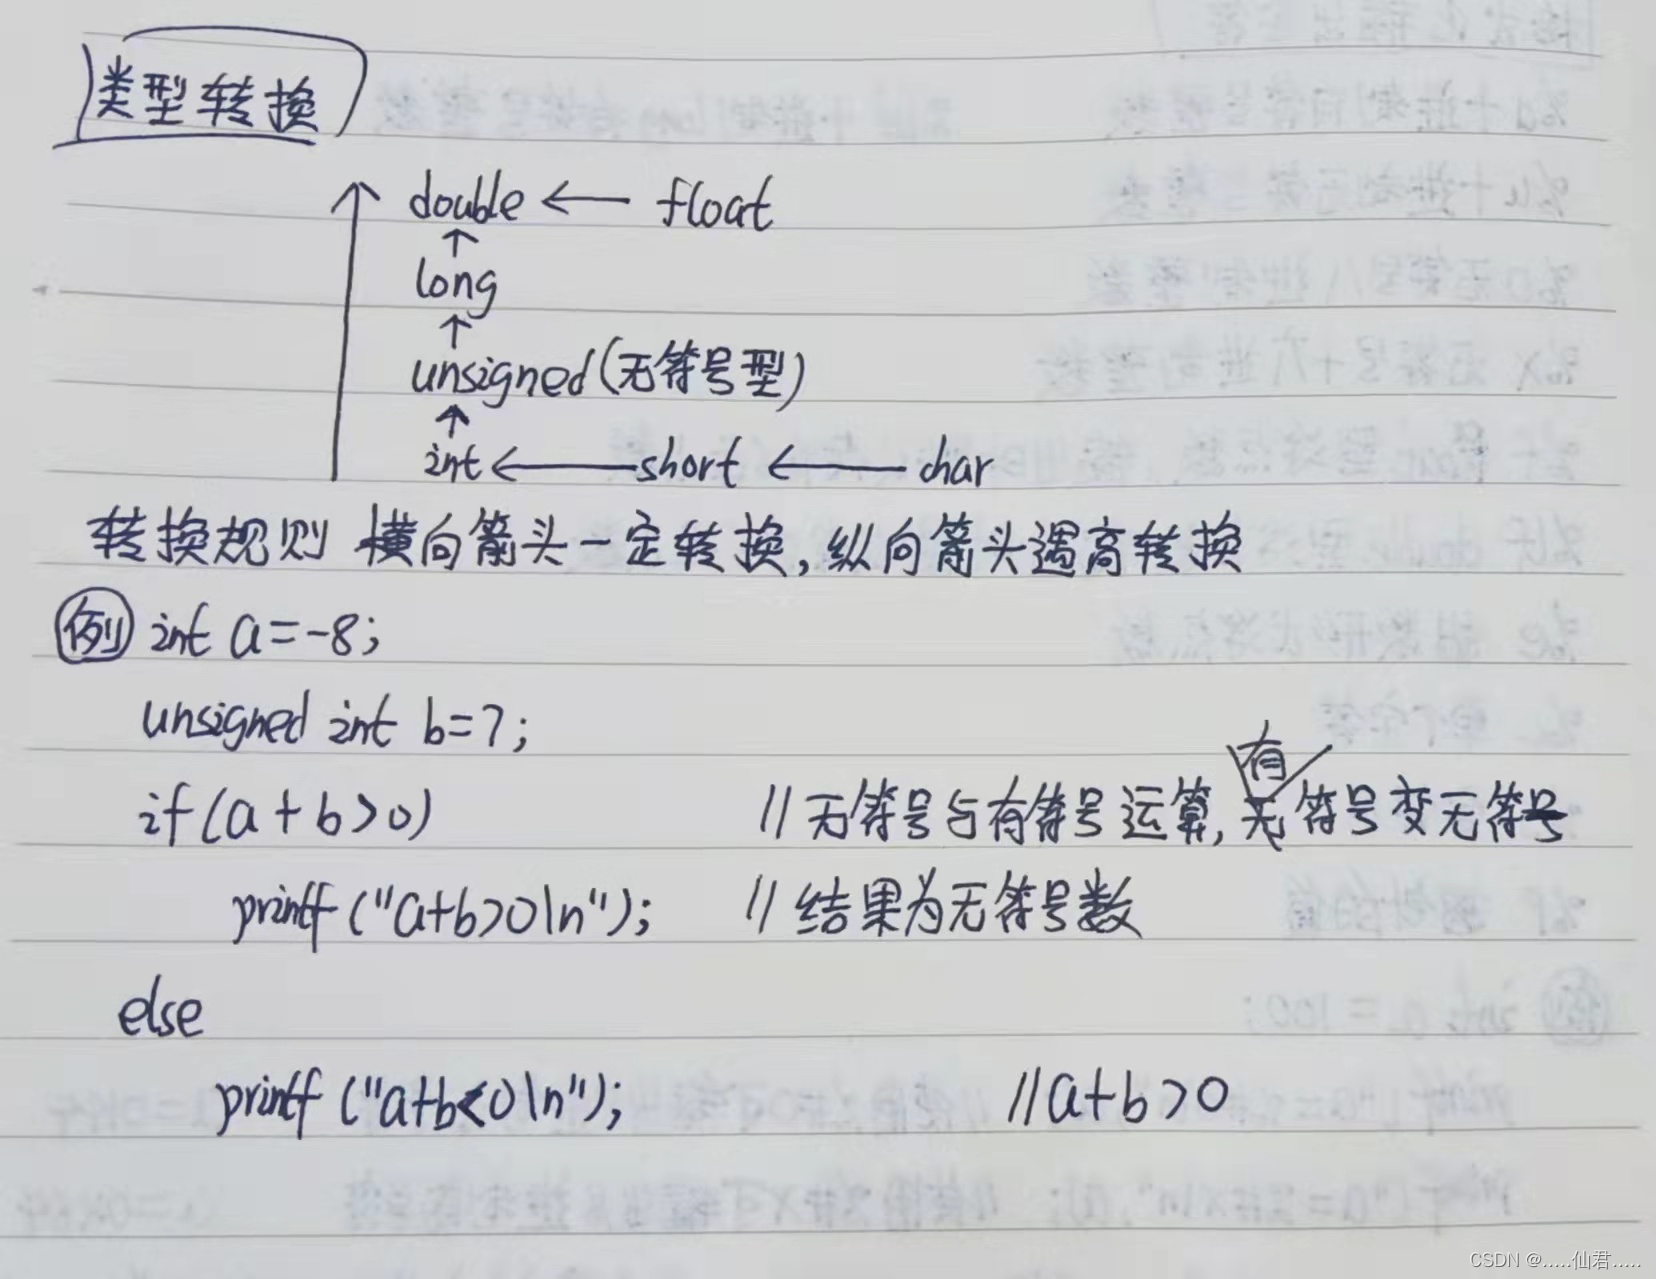 类型转换
double ← float
↑
long
↑
unsigned(无符号型)
↑
int ← short ← char
转换规则 横向箭头一定转换,纵向箭头遇高转换
例 int a=-8;
unsigned int b=7;
if(a+b>0) //无符号与有符号运算,有符号变无符号
printf("a+b>0\n"); //结果为无符号数
else
printf("a+b<0\n"); //a+b>0
CSDN @.....仙君.....